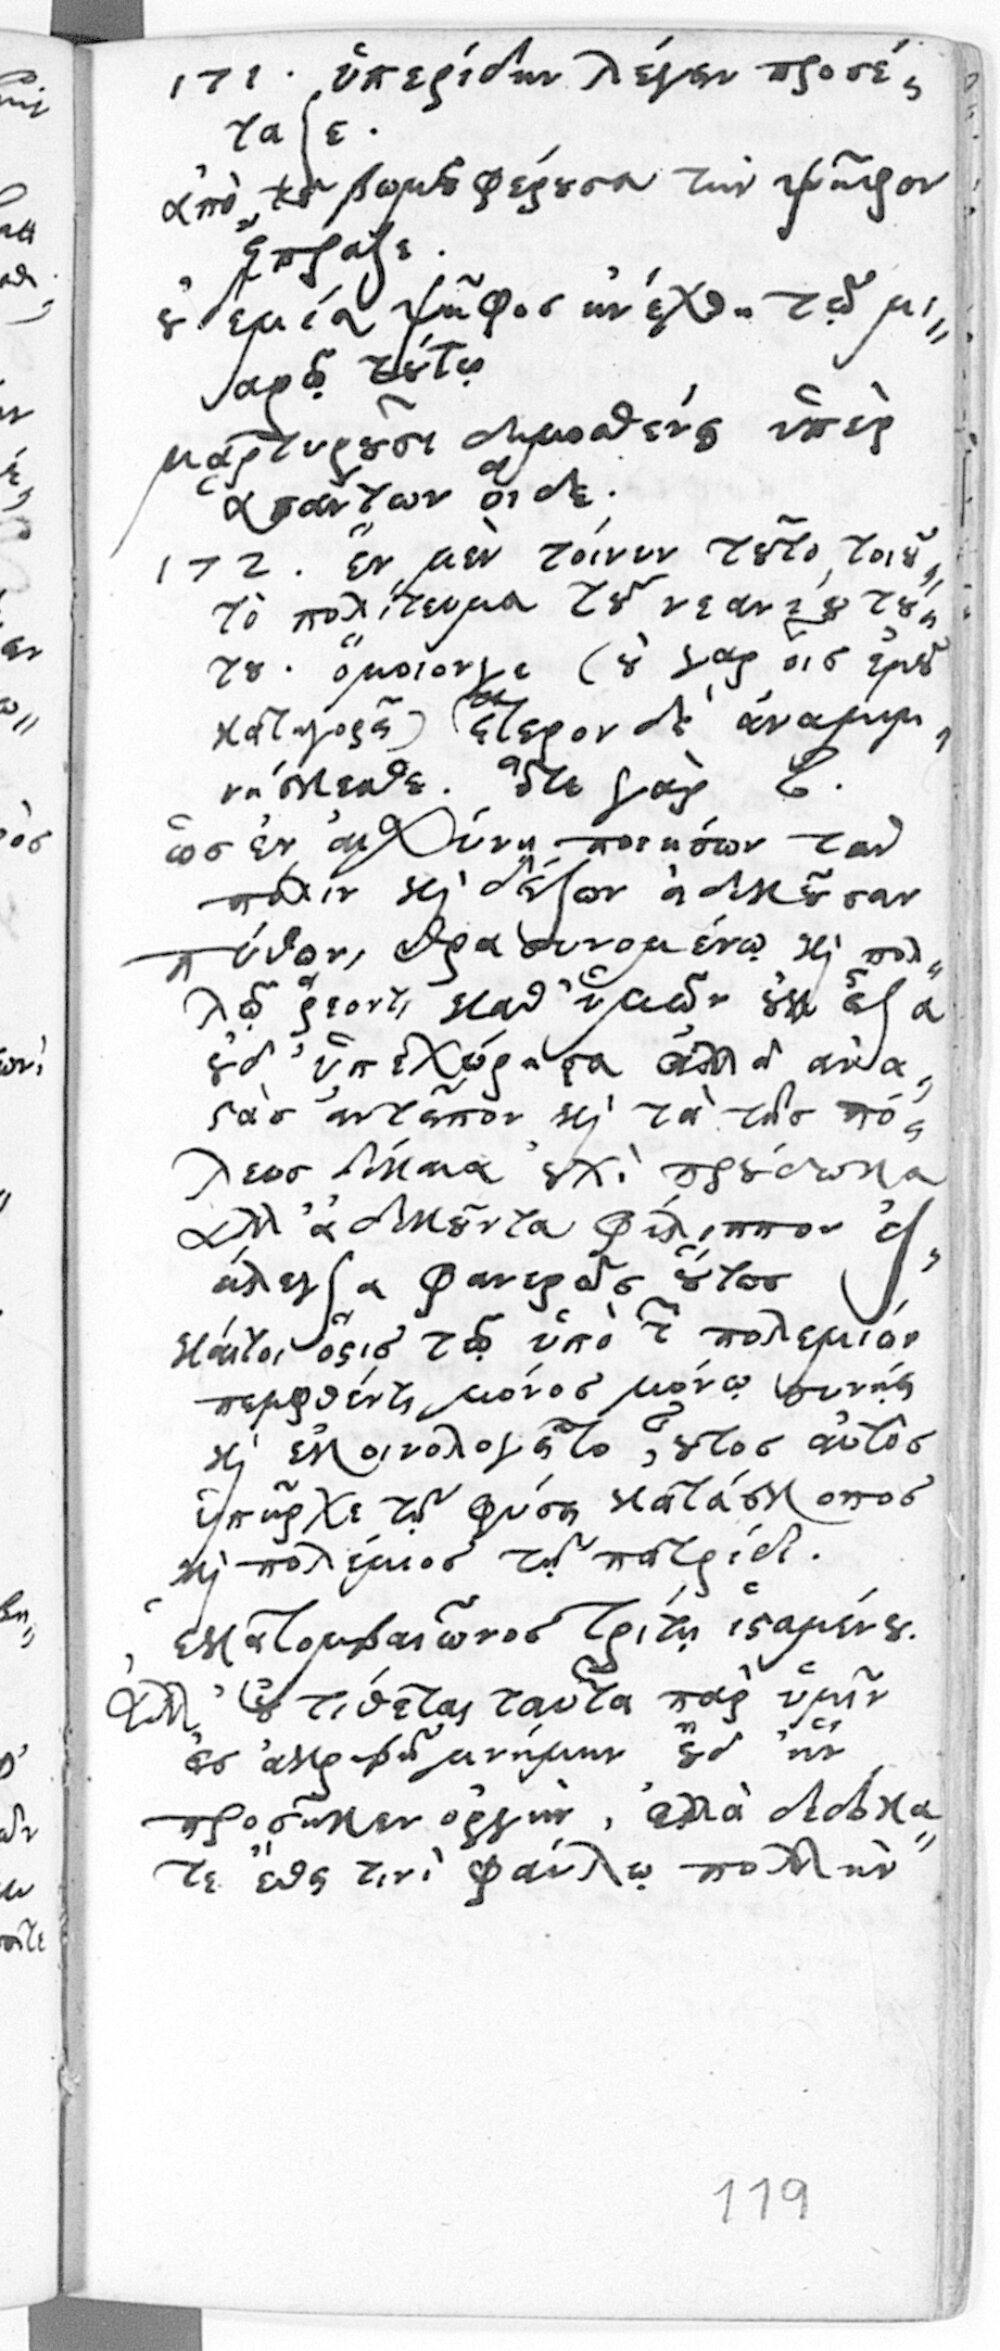 171. ὑπερίδην λέγειν προσέ,
ταξε.
ἀπὸ τοῦ βωμοῦ φέρουσα τὴν ψῆφον
ἔπραξε.
οὐδεμία ψῆφος ἠνέχθη τῷ μι,,
αρῷ τούτῳ
μαρτυροῦσι δημοσθένει ὑπὲρ
ἁπάντων οἵδε.
172. ἓν μὲν τοίνυν τοῦτο τοιοῦ,,
το πολίτευμα τοῦ νεανίου τού,
του. ὅμοιόν γε (οὐ γὰρ οἷς ἐμοῦ
κατηγορεῖ) ἕτερον δὲ ἀναμιμ,
νήσκεσθε. ὅτε γὰρ
ὡς ἐν αἰσχύνῃ ποιήσων τὴν
πόλιν καὶ δείξων ἀδικοῦσαν
πύθωνι θρασυνομένῳ καὶ πολ,,
λῷ ῥέοντι καθ' ὑμῶν οὐκ εἶξα
οὐδ' ὑπεχώρησα ἀλλ' ἀνα,
στὰς ἀντεῖπον καὶ τὰ τῆς πό,
λεως δίκαια οὐχὶ προύδωκα
ἀλλ' ἀδικοῦντα φίλιππον ἐξ,
ήλεγξα φανερῶς οὕτως
καίτοι ὅστις τῷ ὑπὸ τῶν πολεμίων
πεμφθέντι μόνος μόνῳ συνῄει
καὶ ἐκοινολογεῖτο, οὗτος αὐτὸς
ὑπῆρχε τῇ φύσει κατάσκοπος
καὶ πολέμιος τῇ πατρίδι.
ἑκατομβαιῶνος τρίτῃ ἱσταμένου.
ἀλλ' οὐ τίθεται ταῦτα παρ' ὑμῖν
εἰς ἀκριβῆ μνήμην οὐδ' ἣν
προσῆκεν ὀργὴν, ἀλλὰ δεδώκα,,
τε ἔθει τινὶ φαύλῳ πολλὴν
119